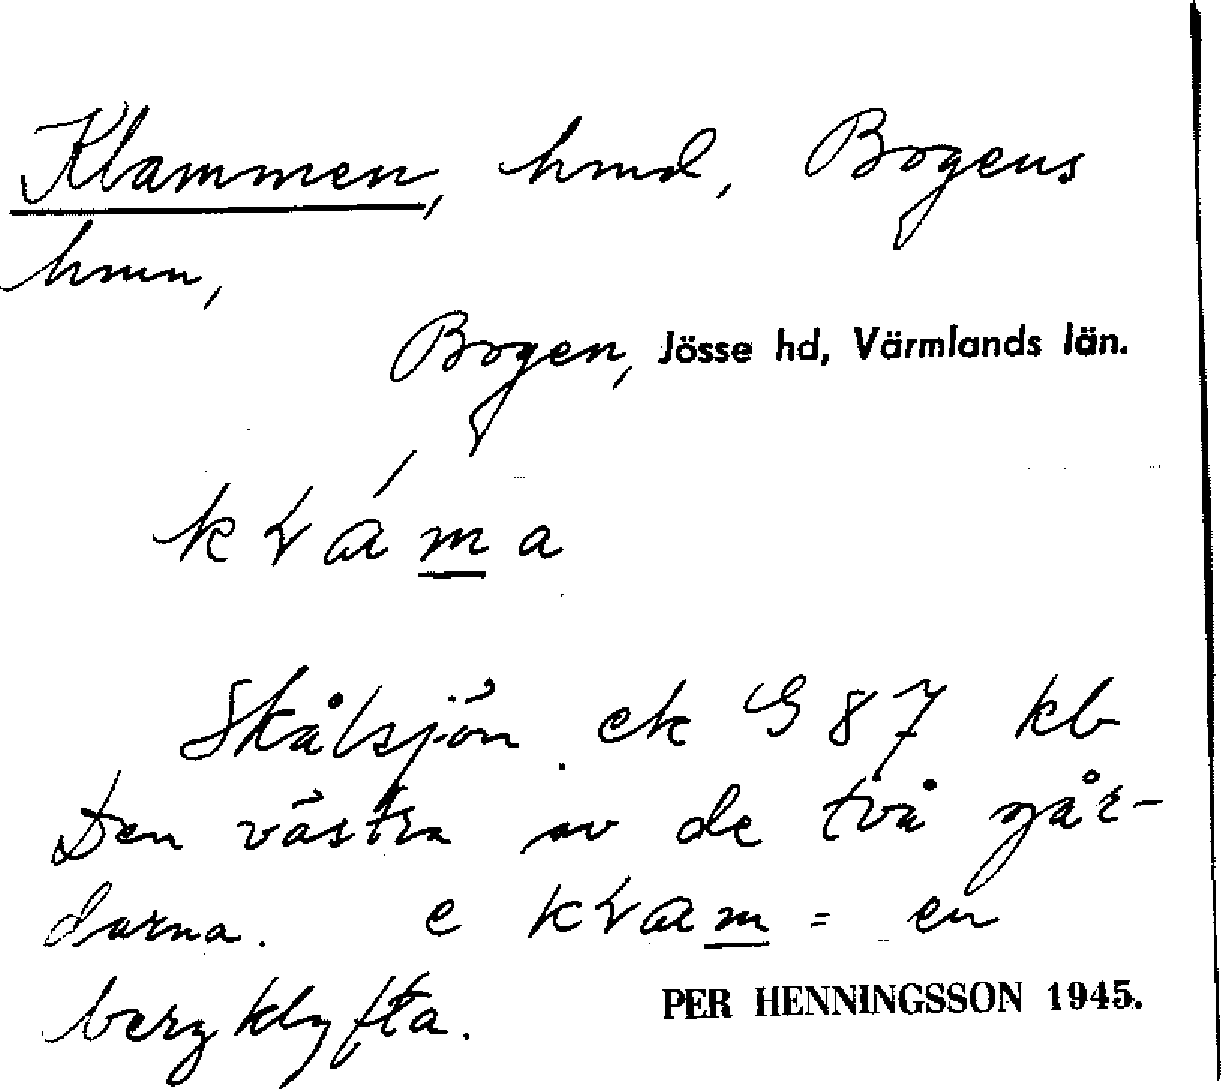 Klammen, hmd, Bogens
hmn,
Bogen, Jösse hd, Värmlands län.
Skålsjön ek G 87 kb
Den västra av de två går-
darna. e = en
bergklyfta. PER HENNINGSSON 1945.